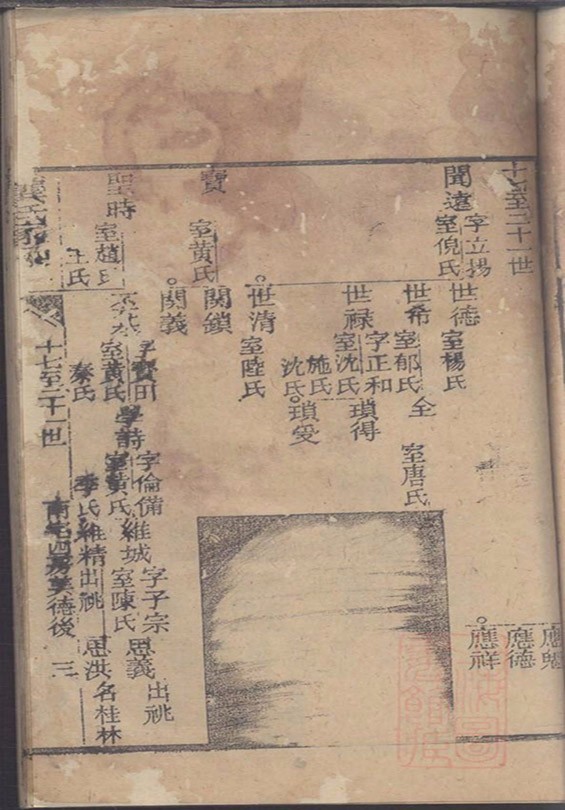 十七至二十一世
聞遠
字立揚
室倪氏
世德
室楊氏
世希
室郁氏
仝
室唐氏
世禄
字正和
室沈氏
施氏
沈氏
瑣得
瑣受
世清
室陸氏
寶
室黄氏
閞鎖
閞義
聖時
室趙氏
王氏
字寳田
室黄氏
秦氏
學詩
字倫備
室黄氏
季氏
維城
字子宗
室陳氏
維精
出祧
思義
出祧
思洪
名桂林
十七至二十一世
南宅西房美德後
三
應德
應祥